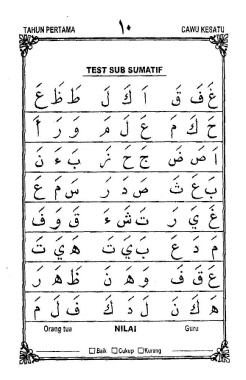 TAHUN PERTAMA ١٠ CAWU KESATU
TEST SUB SUMATIF
غَ فَ قَ اَ كَ لَ طَ ظَ عَ
حَ كَ مَ عَ لَ مَ وَ رَ أَ
اَ صَ ضَ حَ جَ زَ بَ ءَ نَ
بَ عَ ثَ صَ دَ رَ سَ مَ عَ
غَ يَ رَ تَ شَ ءَ قَ وَ فَ
مَ دَ عَ بَ يَ تَ هَ يَ تَ
عَ قَ فَ وَ هَ نَ ظَ هَ رَ
هَ كَ نَ لَ دَ كَ فَ لَ مَ
Orang tua NILAI Guru
Baik Cukup Kurang